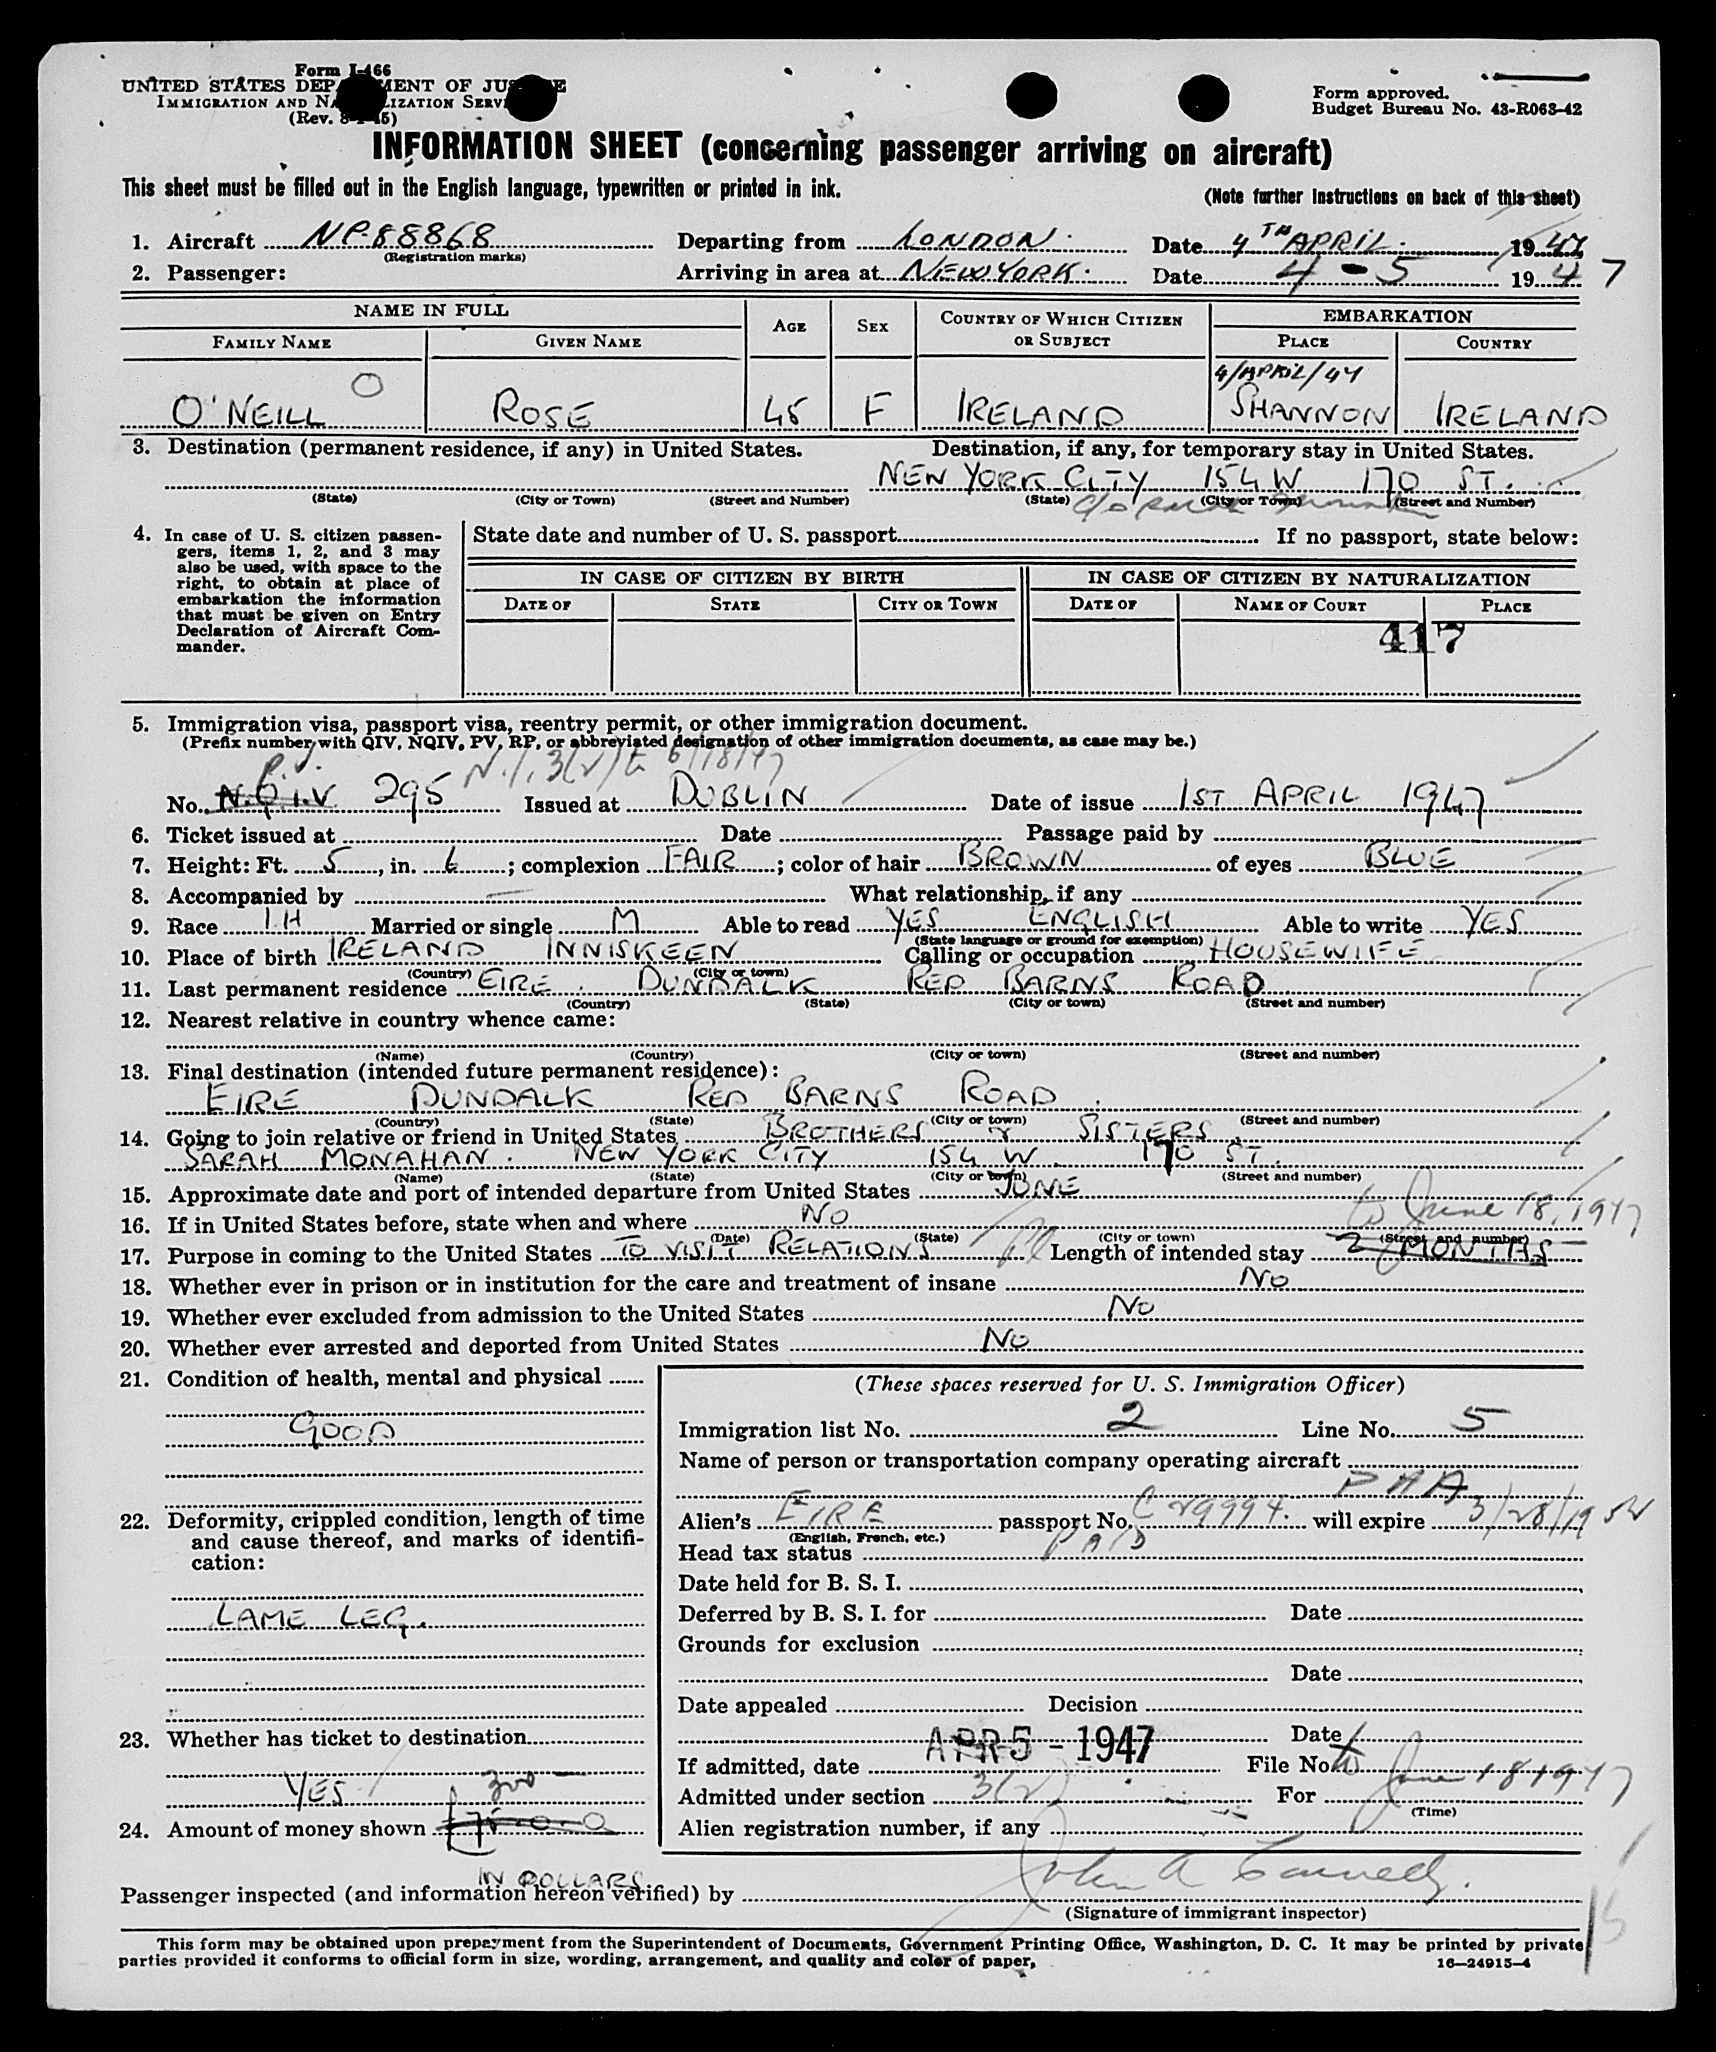 Form I-466
UNITED STATES DEPARTMENT OF JUSTICE
IMMIGRATION AND NATURALIZATION SERVICE
(Rev. 8-1-45)
Form approved.
Budget Bureau No. 43-R063-42
INFORMATION SHEET (concerning passenger arriving on aircraft)
This sheet must be filled out in the English language, typewritten or printed in ink.
(Note further instructions on back of this sheet)
1. Aircraft NP88868 Departing from LONDON. Date 4TH APRIL. 1947
(Registration marks)
2. Passenger: Arriving in area at NEW YORK. Date 4-5 1947
NAME IN FULL AGE SEX COUNTRY OF WHICH CITIZEN OR SUBJECT EMBARKATION
FAMILY NAME GIVEN NAME PLACE COUNTRY
4/APRIL/47
O'NEILL O ROSE 45 F IRELAND SHANNON IRELAND
3. Destination (permanent residence, if any) in United States. Destination, if any, for temporary stay in United States.
NEW YORK CITY 154 W 170 ST.
(State) (City or Town) (Street and Number) (State) (City or Town) (Street and Number)
c/o
4. In case of U. S. citizen passengers, items 1, 2, and 3 may
also be used, with space to the
right, to obtain at place of
embarkation the information
that must be given on Entry
Declaration of Aircraft Commander.
State date and number of U. S. passport If no passport, state below:
IN CASE OF CITIZEN BY BIRTH IN CASE OF CITIZEN BY NATURALIZATION
DATE OF STATE CITY OR TOWN DATE OF NAME OF COURT PLACE
417
5. Immigration visa, passport visa, reentry permit, or other immigration document.
(Prefix number with QIV, NQIV, PV, RP, or abbreviated designation of other immigration documents, as case may be.)
P.V. 3(2) to 6/18/47
No. N.Q.I.V 295 Issued at DUBLIN Date of issue 1ST APRIL 1947
6. Ticket issued at Date Passage paid by
7. Height: Ft. 5, in. 6; complexion FAIR; color of hair BROWN of eyes BLUE
8. Accompanied by — What relationship, if any
9. Race I.H Married or single M Able to read YES ENGLISH Able to write YES
(State language or ground for exemption)
10. Place of birth IRELAND INNISKEEN Calling or occupation HOUSEWIFE
(Country) (City or town)
11. Last permanent residence EIRE. DUNDALK RED BARNS ROAD
(Country) (State) (City or town) (Street and number)
12. Nearest relative in country whence came:
(Name) (Country) (City or town) (Street and number)
13. Final destination (intended future permanent residence):
EIRE DUNDALK RED BARNS ROAD.
(Country) (State) (City or town) (Street and number)
14. Going to join relative or friend in United States BROTHERS & SISTERS.
SARAH MONAHAN. NEW YORK CITY 154 W. 170 ST.
(Name) (State) (City or town) (Street and number)
15. Approximate date and port of intended departure from United States JUNE
to June 18, 1947
16. If in United States before, state when and where NO
(Date) (State) (City or town) (Street and number)
17. Purpose in coming to the United States TO VISIT RELATIONS Length of intended stay 2 MONTHS
18. Whether ever in prison or in institution for the care and treatment of insane NO
19. Whether ever excluded from admission to the United States NO
20. Whether ever arrested and deported from United States NO
21. Condition of health, mental and physical
GOOD
22. Deformity, crippled condition, length of time
and cause thereof, and marks of identification:
LAME LEG.
23. Whether has ticket to destination
YES
300 —
24. Amount of money shown £75-0-0
IN DOLLARS
(These spaces reserved for U. S. Immigration Officer)
Immigration list No. 2 Line No. 5
Name of person or transportation company operating aircraft
PAA
Alien's EIRE passport No. C 29994. will expire 3/28/1952
(English, French, etc.)
Head tax status PAID
Date held for B. S. I.
Deferred by B. S. I. for Date
Grounds for exclusion
Date
Date appealed Decision
Date
If admitted, date APR 5 - 1947 File No.
Admitted under section 3(2) For to June 18 1947
(Time)
Alien registration number, if any
Passenger inspected (and information hereon verified) by John A
(Signature of immigrant inspector)
This form may be obtained upon prepayment from the Superintendent of Documents, Government Printing Office, Washington, D. C. It may be printed by private
parties provided it conforms to official form in size, wording, arrangement, and quality and color of paper.
16—24915-4